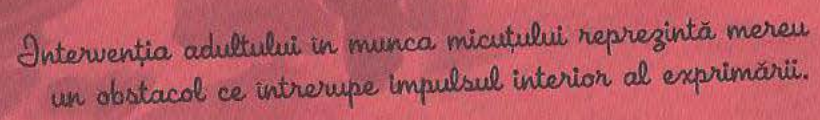 Intervenția adultului în munca micuțului reprezintă mereu
un obstacol ce întrerupe impulsul interior al exprimării.